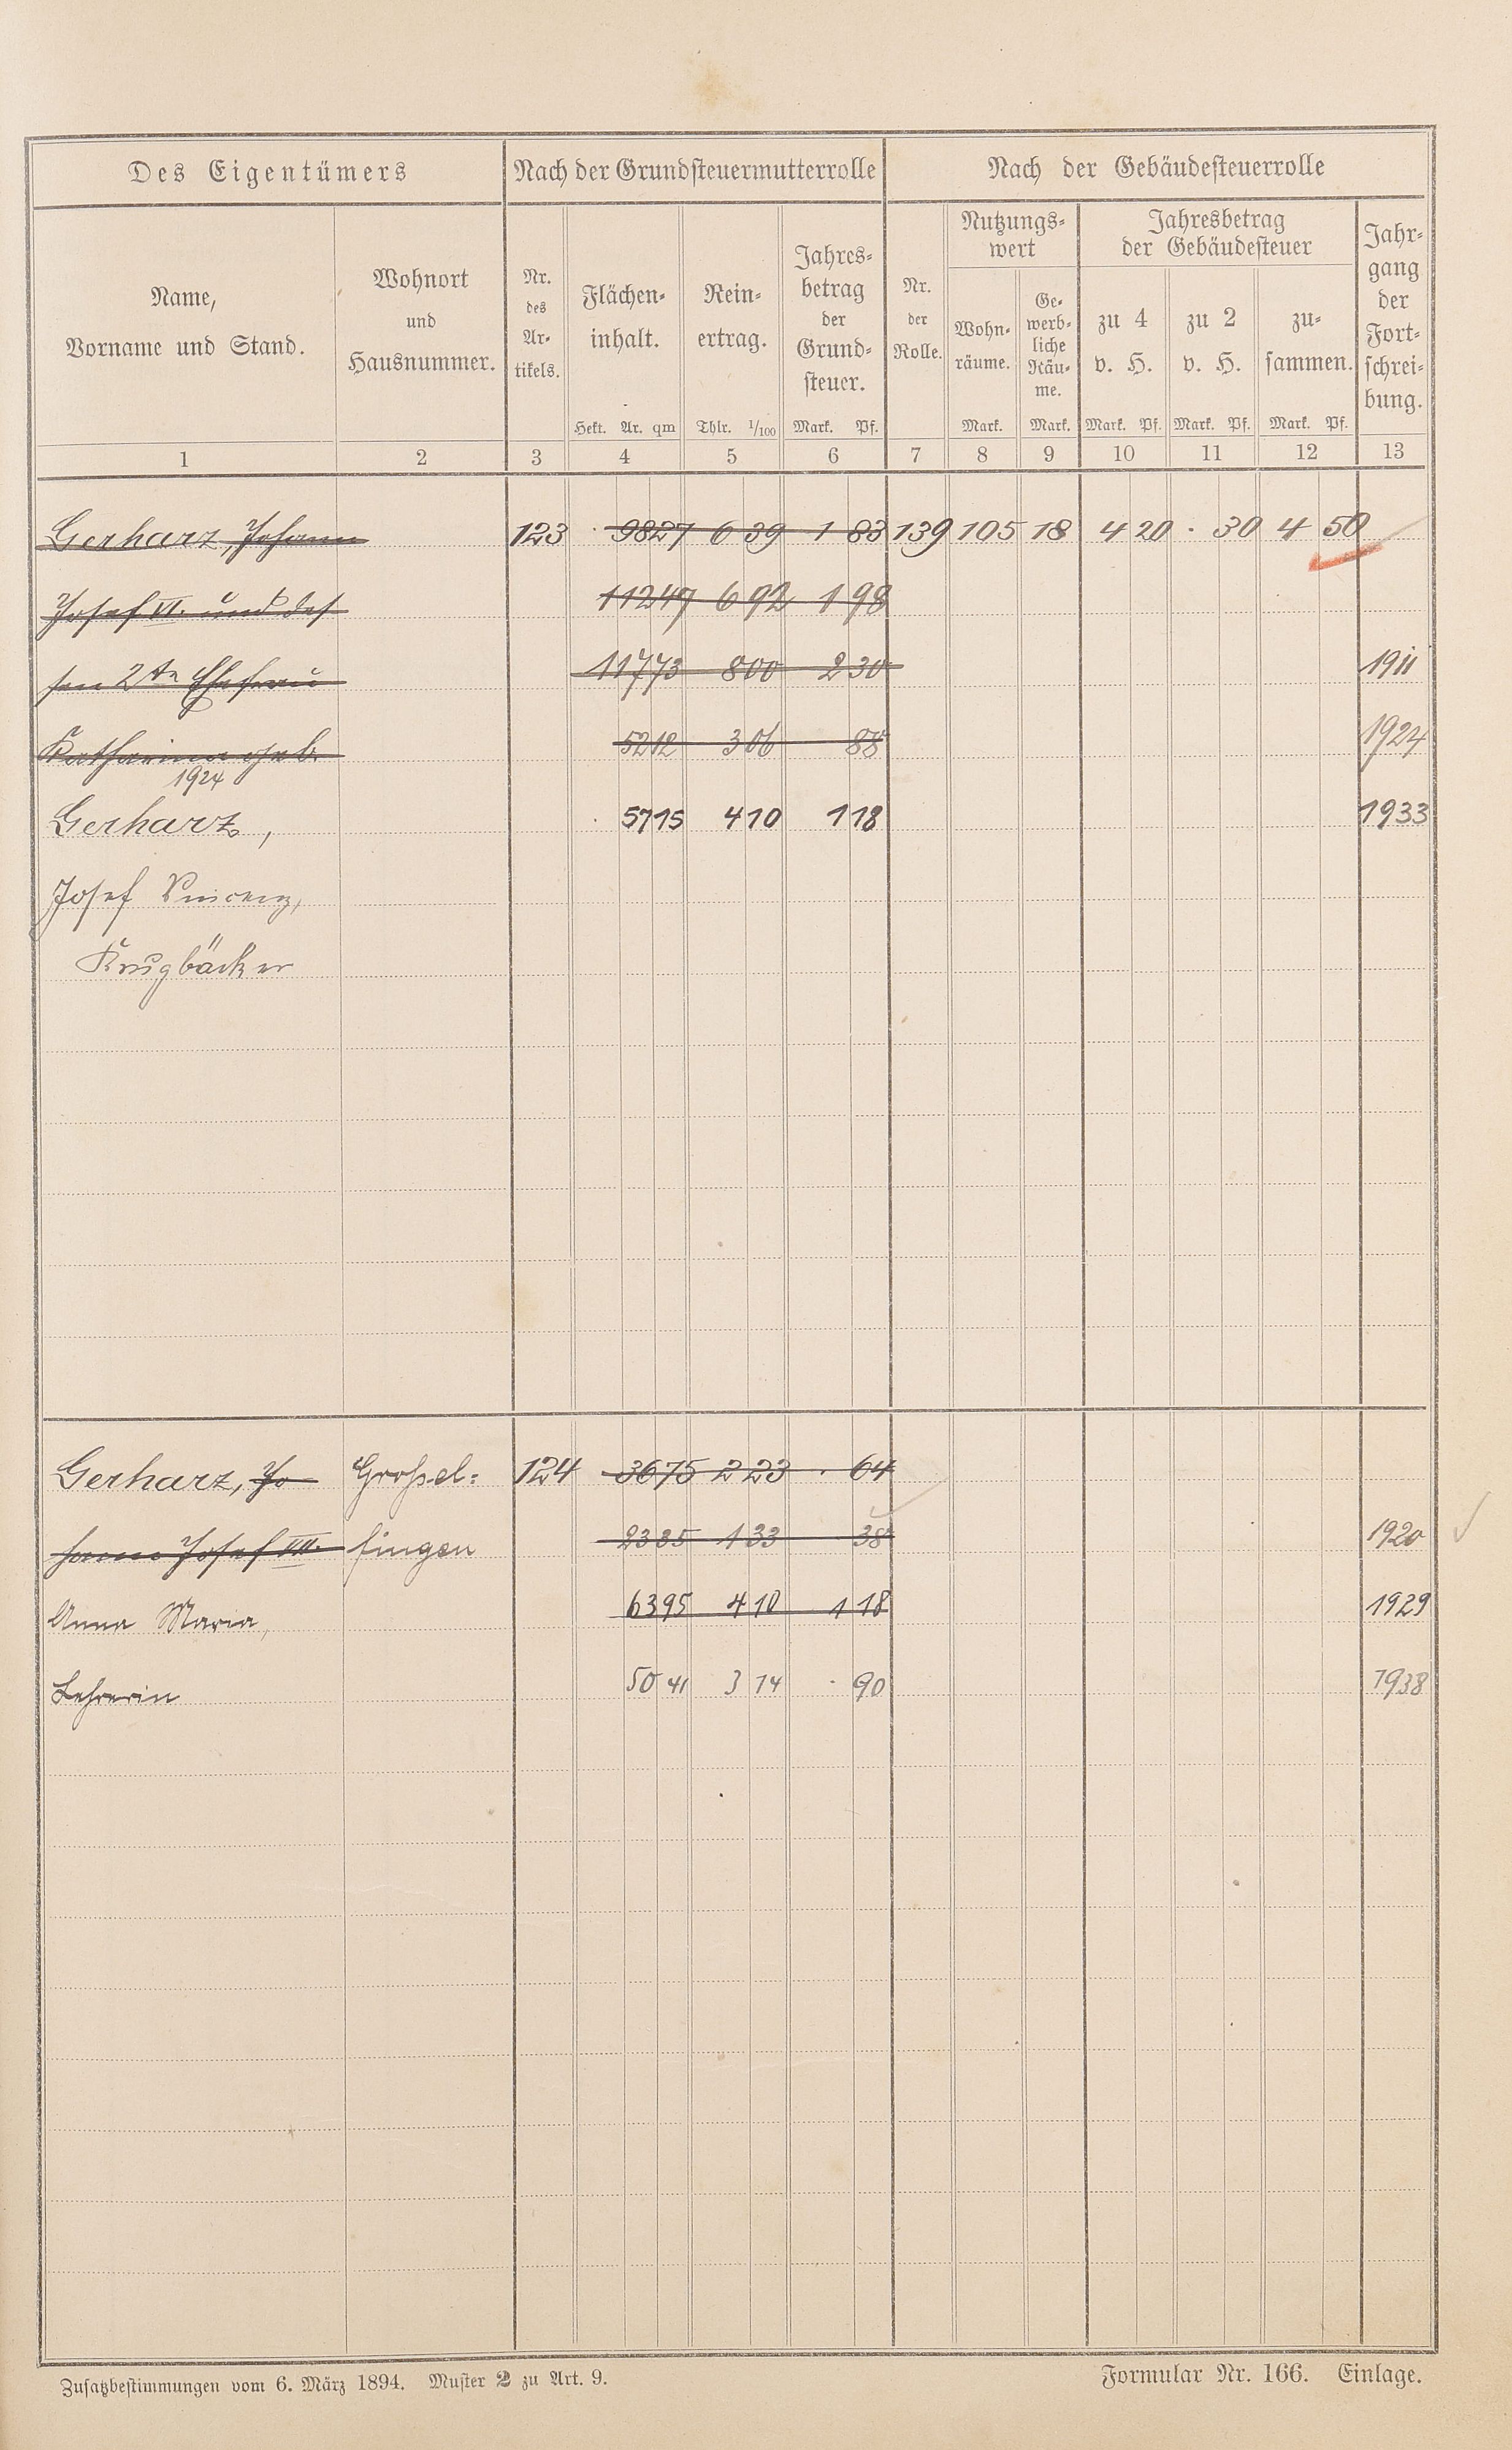 Des Eigentümers Nach der Grundsteuermutterrolle Nach der Gebäudesteuerrolle
Name,
Vorname und Stand.
Wohnort
und
Hausnummer.
Nr.
des
Ar-
tikels.
Flächen-
inhalt.
Hekt. Ar. qm
Rein-
ertrag.
Thlr. 1/100
Jahres-
betrag
der
Grund-
steuer.
Mark. Pf.
Nr.
der
Rolle.
Nutzungs-
wert
Wohn-
räume.
Mark.
Ge-
werb-
liche
Räu-
me.
Mark.
Jahresbetrag
der Gebäudesteuer
zu 4
v. H.
Mark. Pf.
zu 2
v. H.
Mark. Pf.
zu-
sammen.
Mark. Pf.
Jahr-
gang
der
Fort-
schrei-
bung.
1 2 3 4 5 6 7 8 9 10 11 12 13
Gerharz, Johann 123 . 98 27 6 39 1 83 139 105 18 4 20 . 30 4 50
Josef VI. und des 1 12 47 6 92 1 98
sen 2te Ehefrau 1 17 73 8 00 2 30 1911
Katharina geb. 52 12 3 06 88 1924
1924
Gerharz, . 57 15 4 10 1 18 1933
Josef Vincenz,
Krugbäcker
Gerharz, Jo Großel= 124 36 75 2 23 . 64
hann Josef VIII. fingen 23 35 1 33 . 38 1920
Anna Maria, 63 95 4 10 1 18 1929
Lehrerin 50 41 3 14 . 90 1938
Zusatzbestimmungen vom 6. März 1894. Muster 2 zu Art. 9. Formular Nr. 166. Einlage.